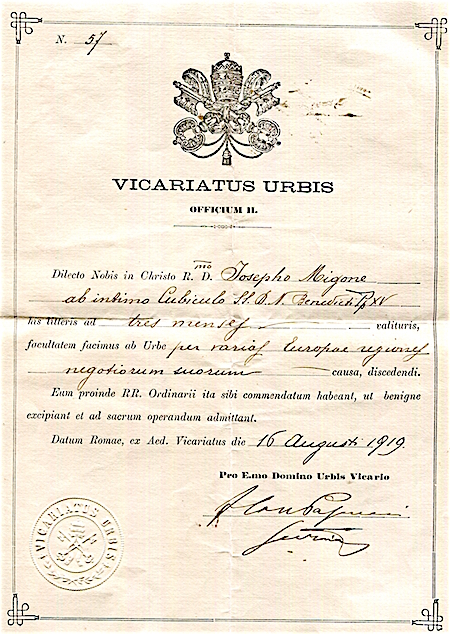 N. 57
VICARIATUS URBIS
OFFICIUM II.
Dilecto Nobis in Christo R.mo D. Josepho Migone
ab intimo Cubiculo SS. D. N. Benedicti Pp XV
his litteris ad tres menses valituris,
facultatem facimus ab Urbe per varias Europae regiones
negotiorum suorum causa, discedendi.
Eum proinde RR. Ordinarii ita sibi commendatum habeant, ut benigne
excipiant et ad sacrum operandum admittant.
Datum Romae, ex Aed. Vicariatus die 16 Augusti 1919.
Pro E.mo Domino Urbis Vicario
VICARIATUS URBIS